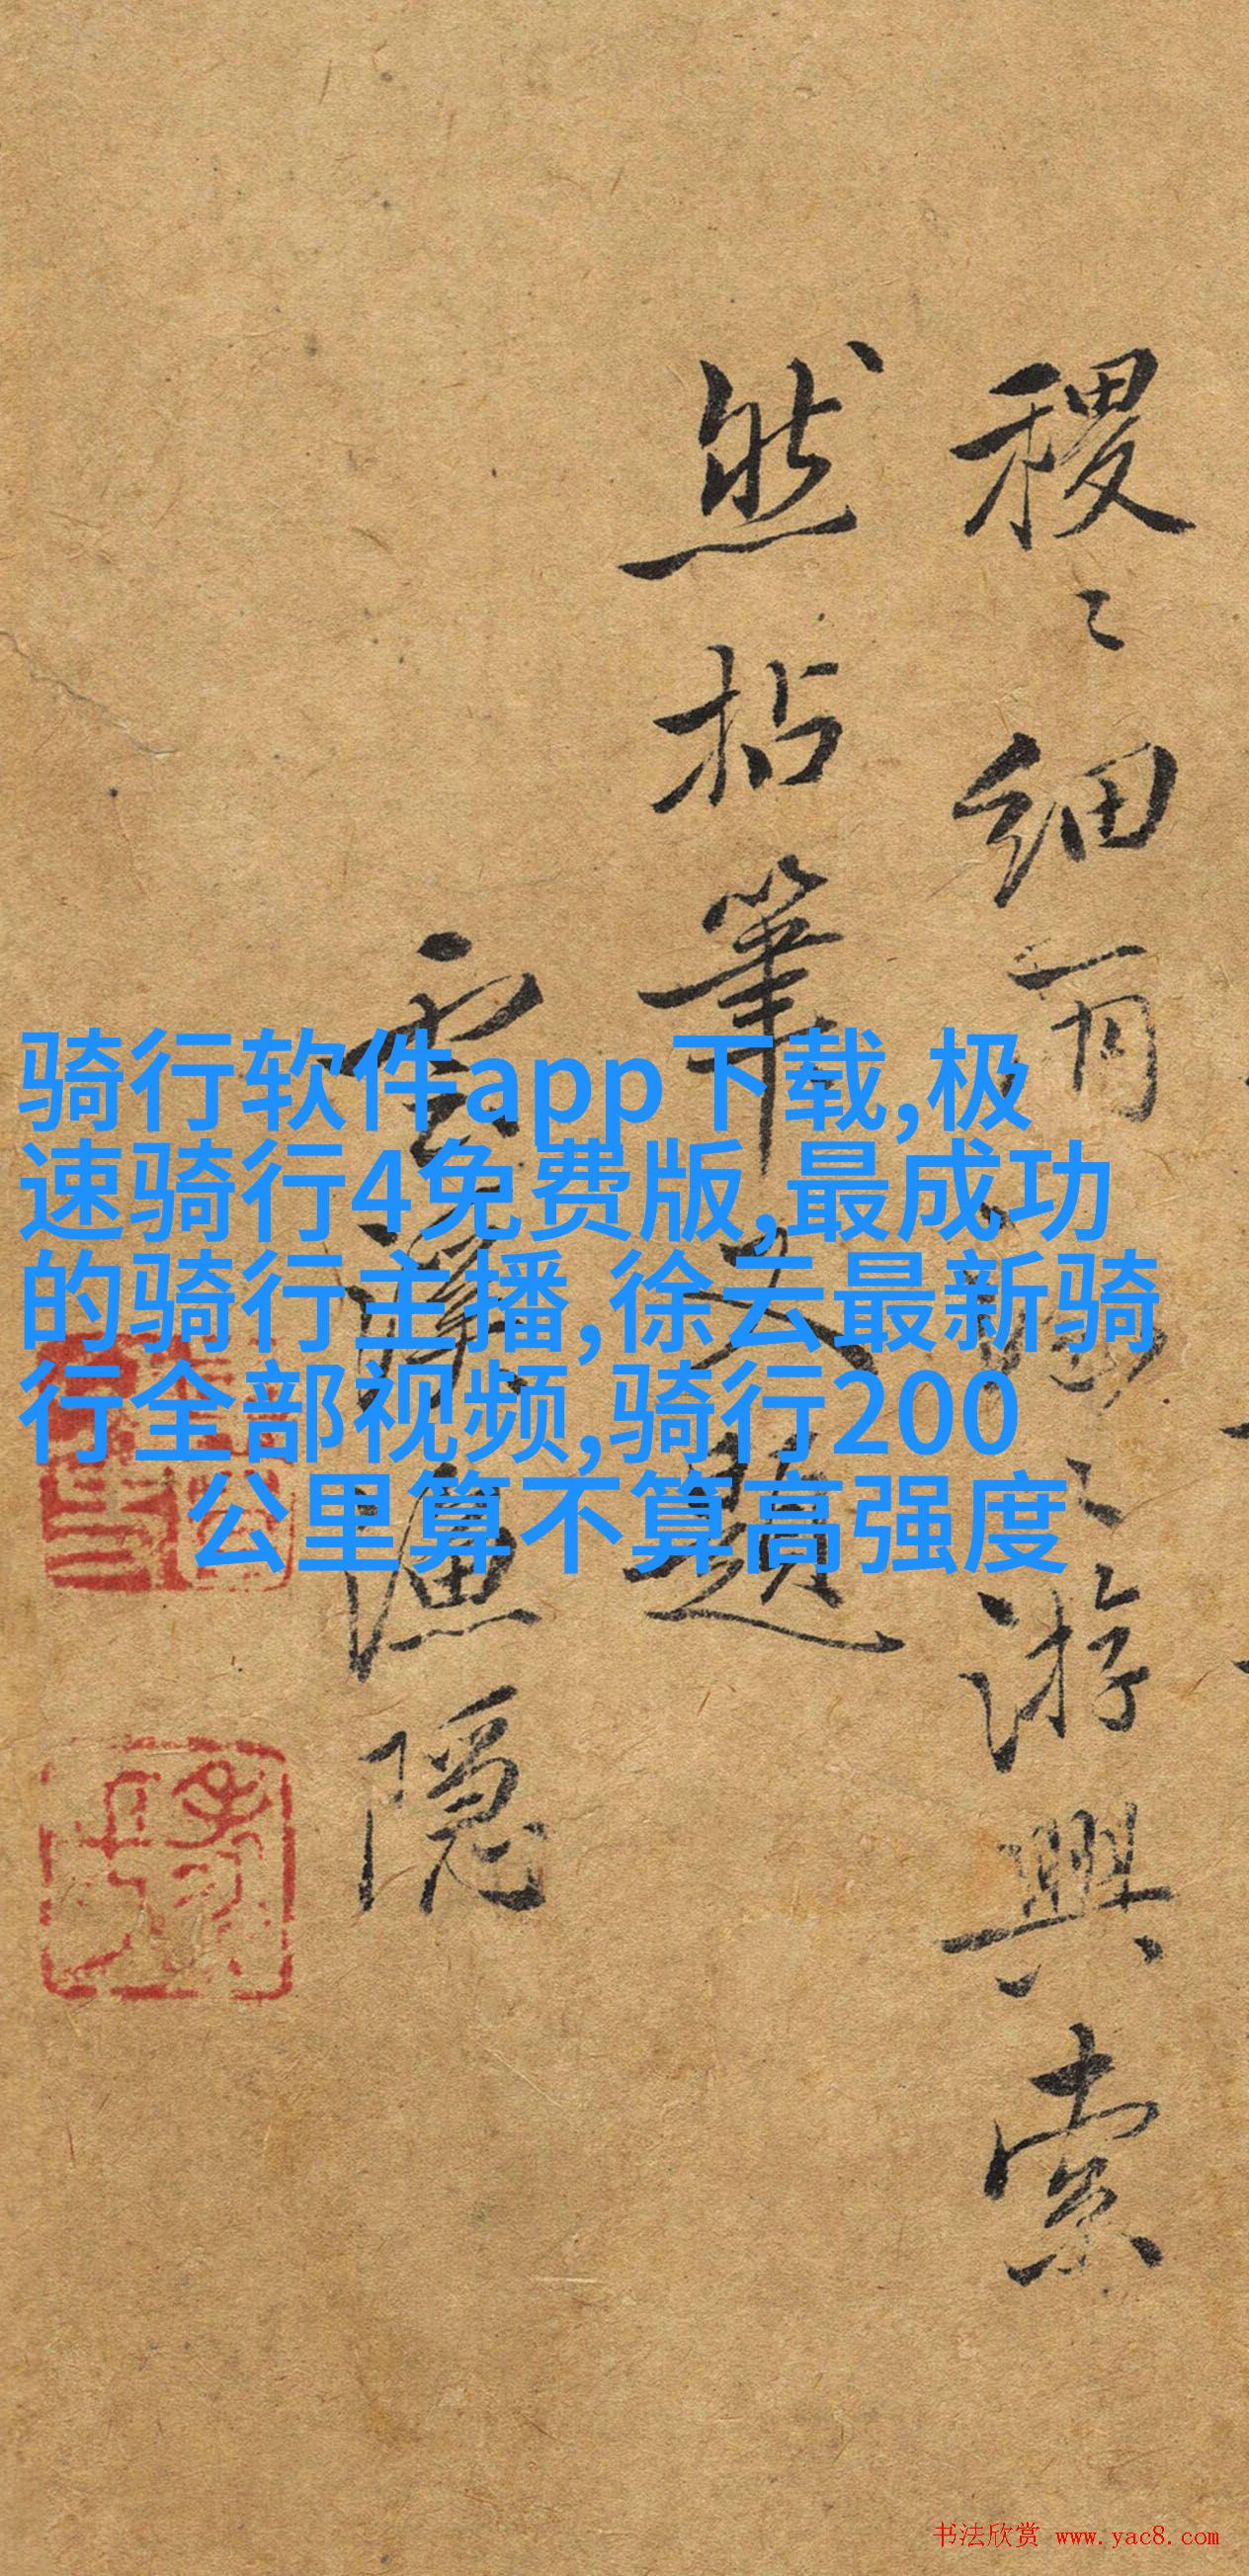 稷〻细
游興索
然拈筆又題
雲溪漁隠
骑行软件app下载,极
速骑行4免费版,最成功
的骑行主播,徐云最新骑
行全部视频,骑行200
公里算不算高强度
书法欣赏 www.yac8.com